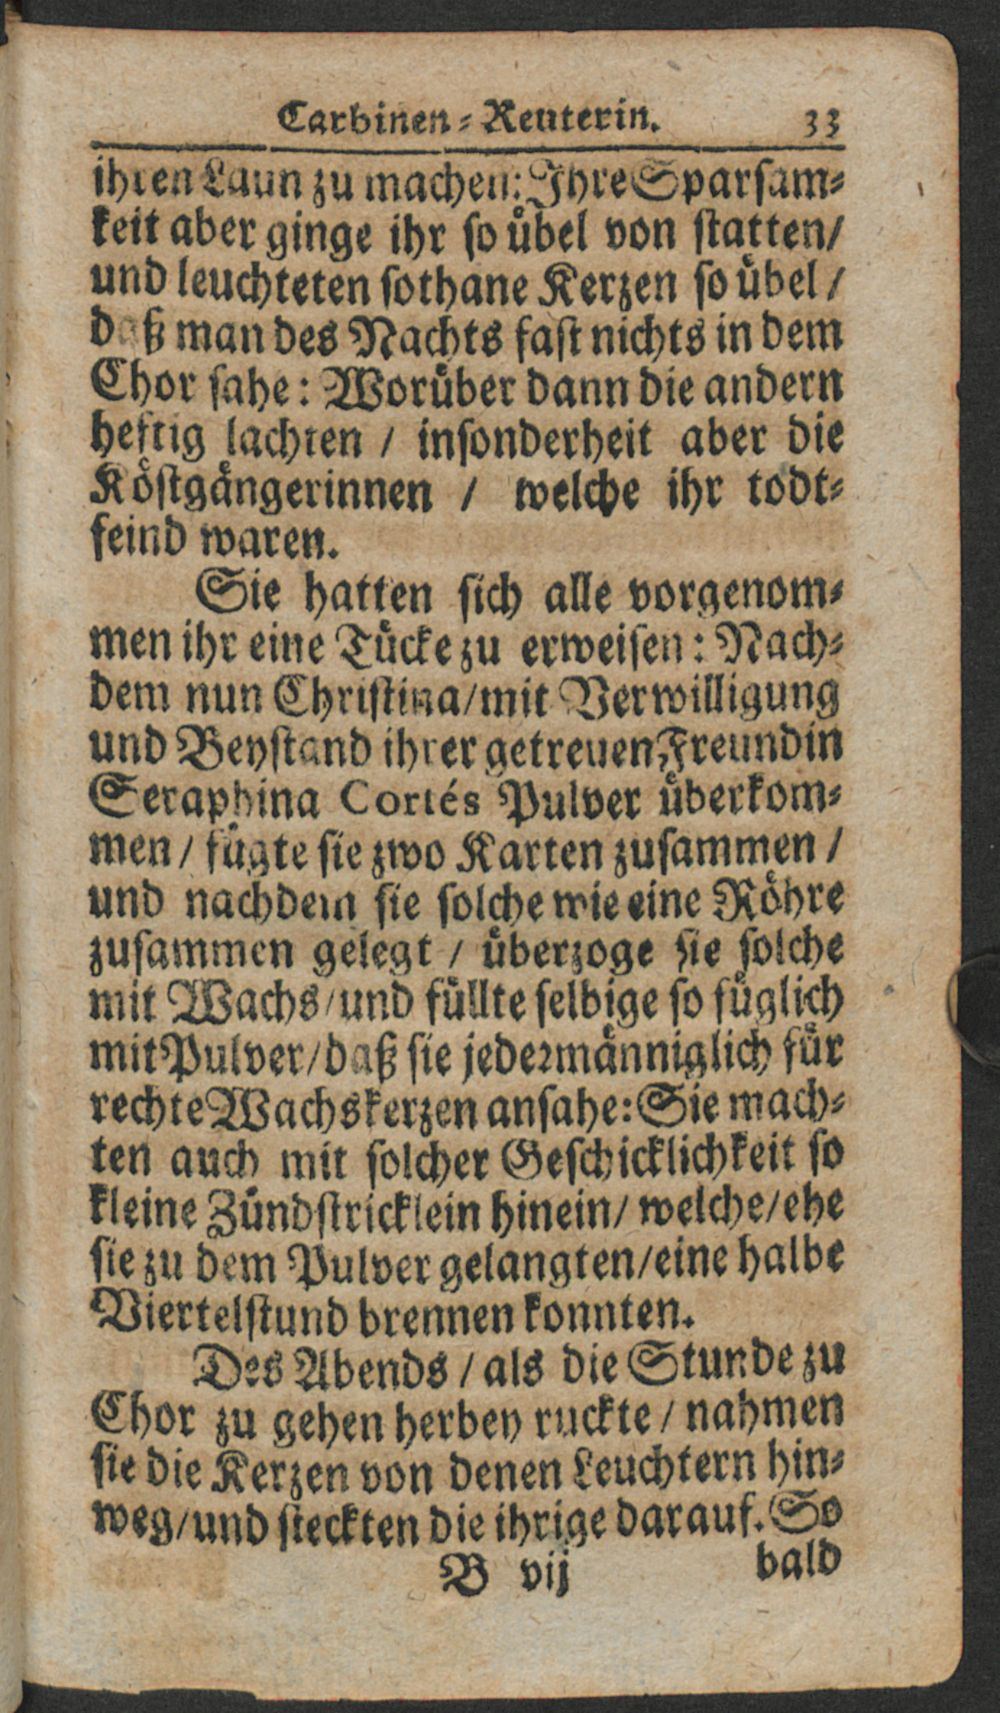 Carbinen-Reuterin. 33
ihren Laun zu machen: Ihre Sparsam-
keit aber ginge ihr so übel von statten/
und leuchteten sothane Kerzen so übel /
daß man des Nachts fast nichts in dem
Chor sahe: Worüber dann die andern
heftig lachten / insonderheit aber die
Köstgängerinnen / welche ihr todt-
feind waren.
Sie hatten sich alle vorgenom-
men ihr eine Tücke zu erweisen: Nach-
dem nun Christina/mit Verwilligung
und Beystand ihrer getreuen Freundin
Seraphina Cortés Pulver überkom-
men / fügte sie zwo Karten zusammen /
und nachdem sie solche wie eine Röhre
zusammen gelegt / überzoge sie solche
mit Wachs/und füllte selbige so füglich
mit Pulver/daß sie jedermänniglich für
rechte Wachskerzen ansahe: Sie mach-
ten auch mit solcher Geschicklichkeit so
kleine Zündstricklein hinein/ welche/ehe
sie zu dem Pulver gelangten/eine halbe
Viertelstund brennen konnten.
Des Abends / als die Stunde zu
Chor zu gehen herbey ruckte / nahmen
sie die Kerzen von denen Leuchtern hin-
weg/und steckten die ihrige darauf. So
B vij bald